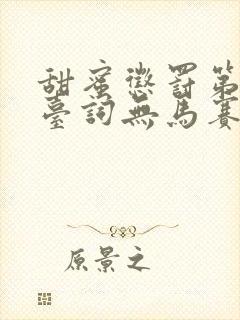 甜蜜懲罰第
臺詞無馬賽
原景之